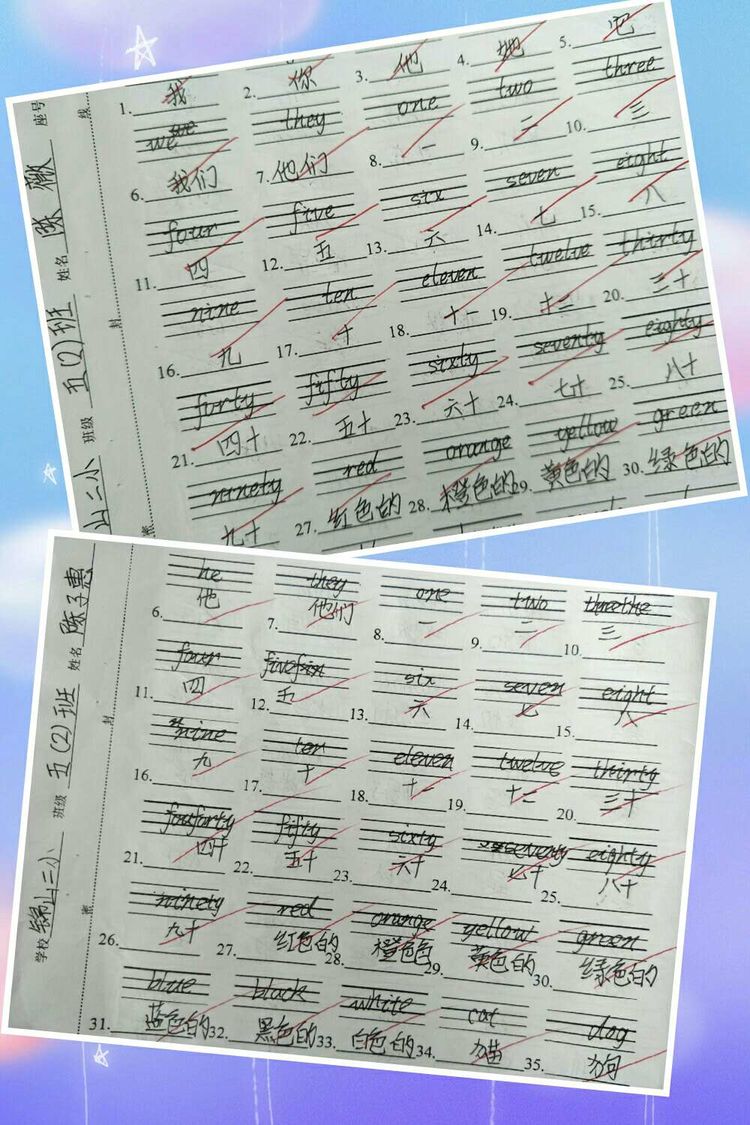 座号
姓名 陈薇
班级 五(2)班
山二小
线
封
密
1. 我 2. 你 3. 他 4. 她 5. 吧
we they one two three
6. 我们 7. 他们 8. 一 9. 二 10. 三
four five six seven eight
11. 四 12. 五 13. 六 14. 七 15. 八
nine ten eleven twelve thirty
16. 九 17. 十 18. 十一 19. 十二 20. 三十
furty fifty sixty seventy eighty
21. 四十 22. 五十 23. 六十 24. 七十 25. 八十
ninety red orange yellow green
九十 27. 红色的 28. 橙色的 29. 黄色的 30. 绿色的
姓名 陈子惠
班级 五(2)班
学校 锦山二小
封
密
he they one two three
6. 他 7. 他们 8. 一 9. 二 10. 三
four five six seven eight
11. 四 12. 五 13. 六 14. 七 15. 八
nine ten eleven twelve thirty
16. 九 17. 十 18. 十一 19. 十二 20. 三十
forty fifty sixty seventy eighty
21. 四十 22. 五十 23. 六十 24. 七十 25. 八十
ninety red orange yellow green
26. 九十 27. 红色的 28. 橙色色 29. 黄色的 30. 绿色的
blue black white cat dog
31. 蓝色的 32. 黑色的 33. 白色的 34. 猫 35. 狗